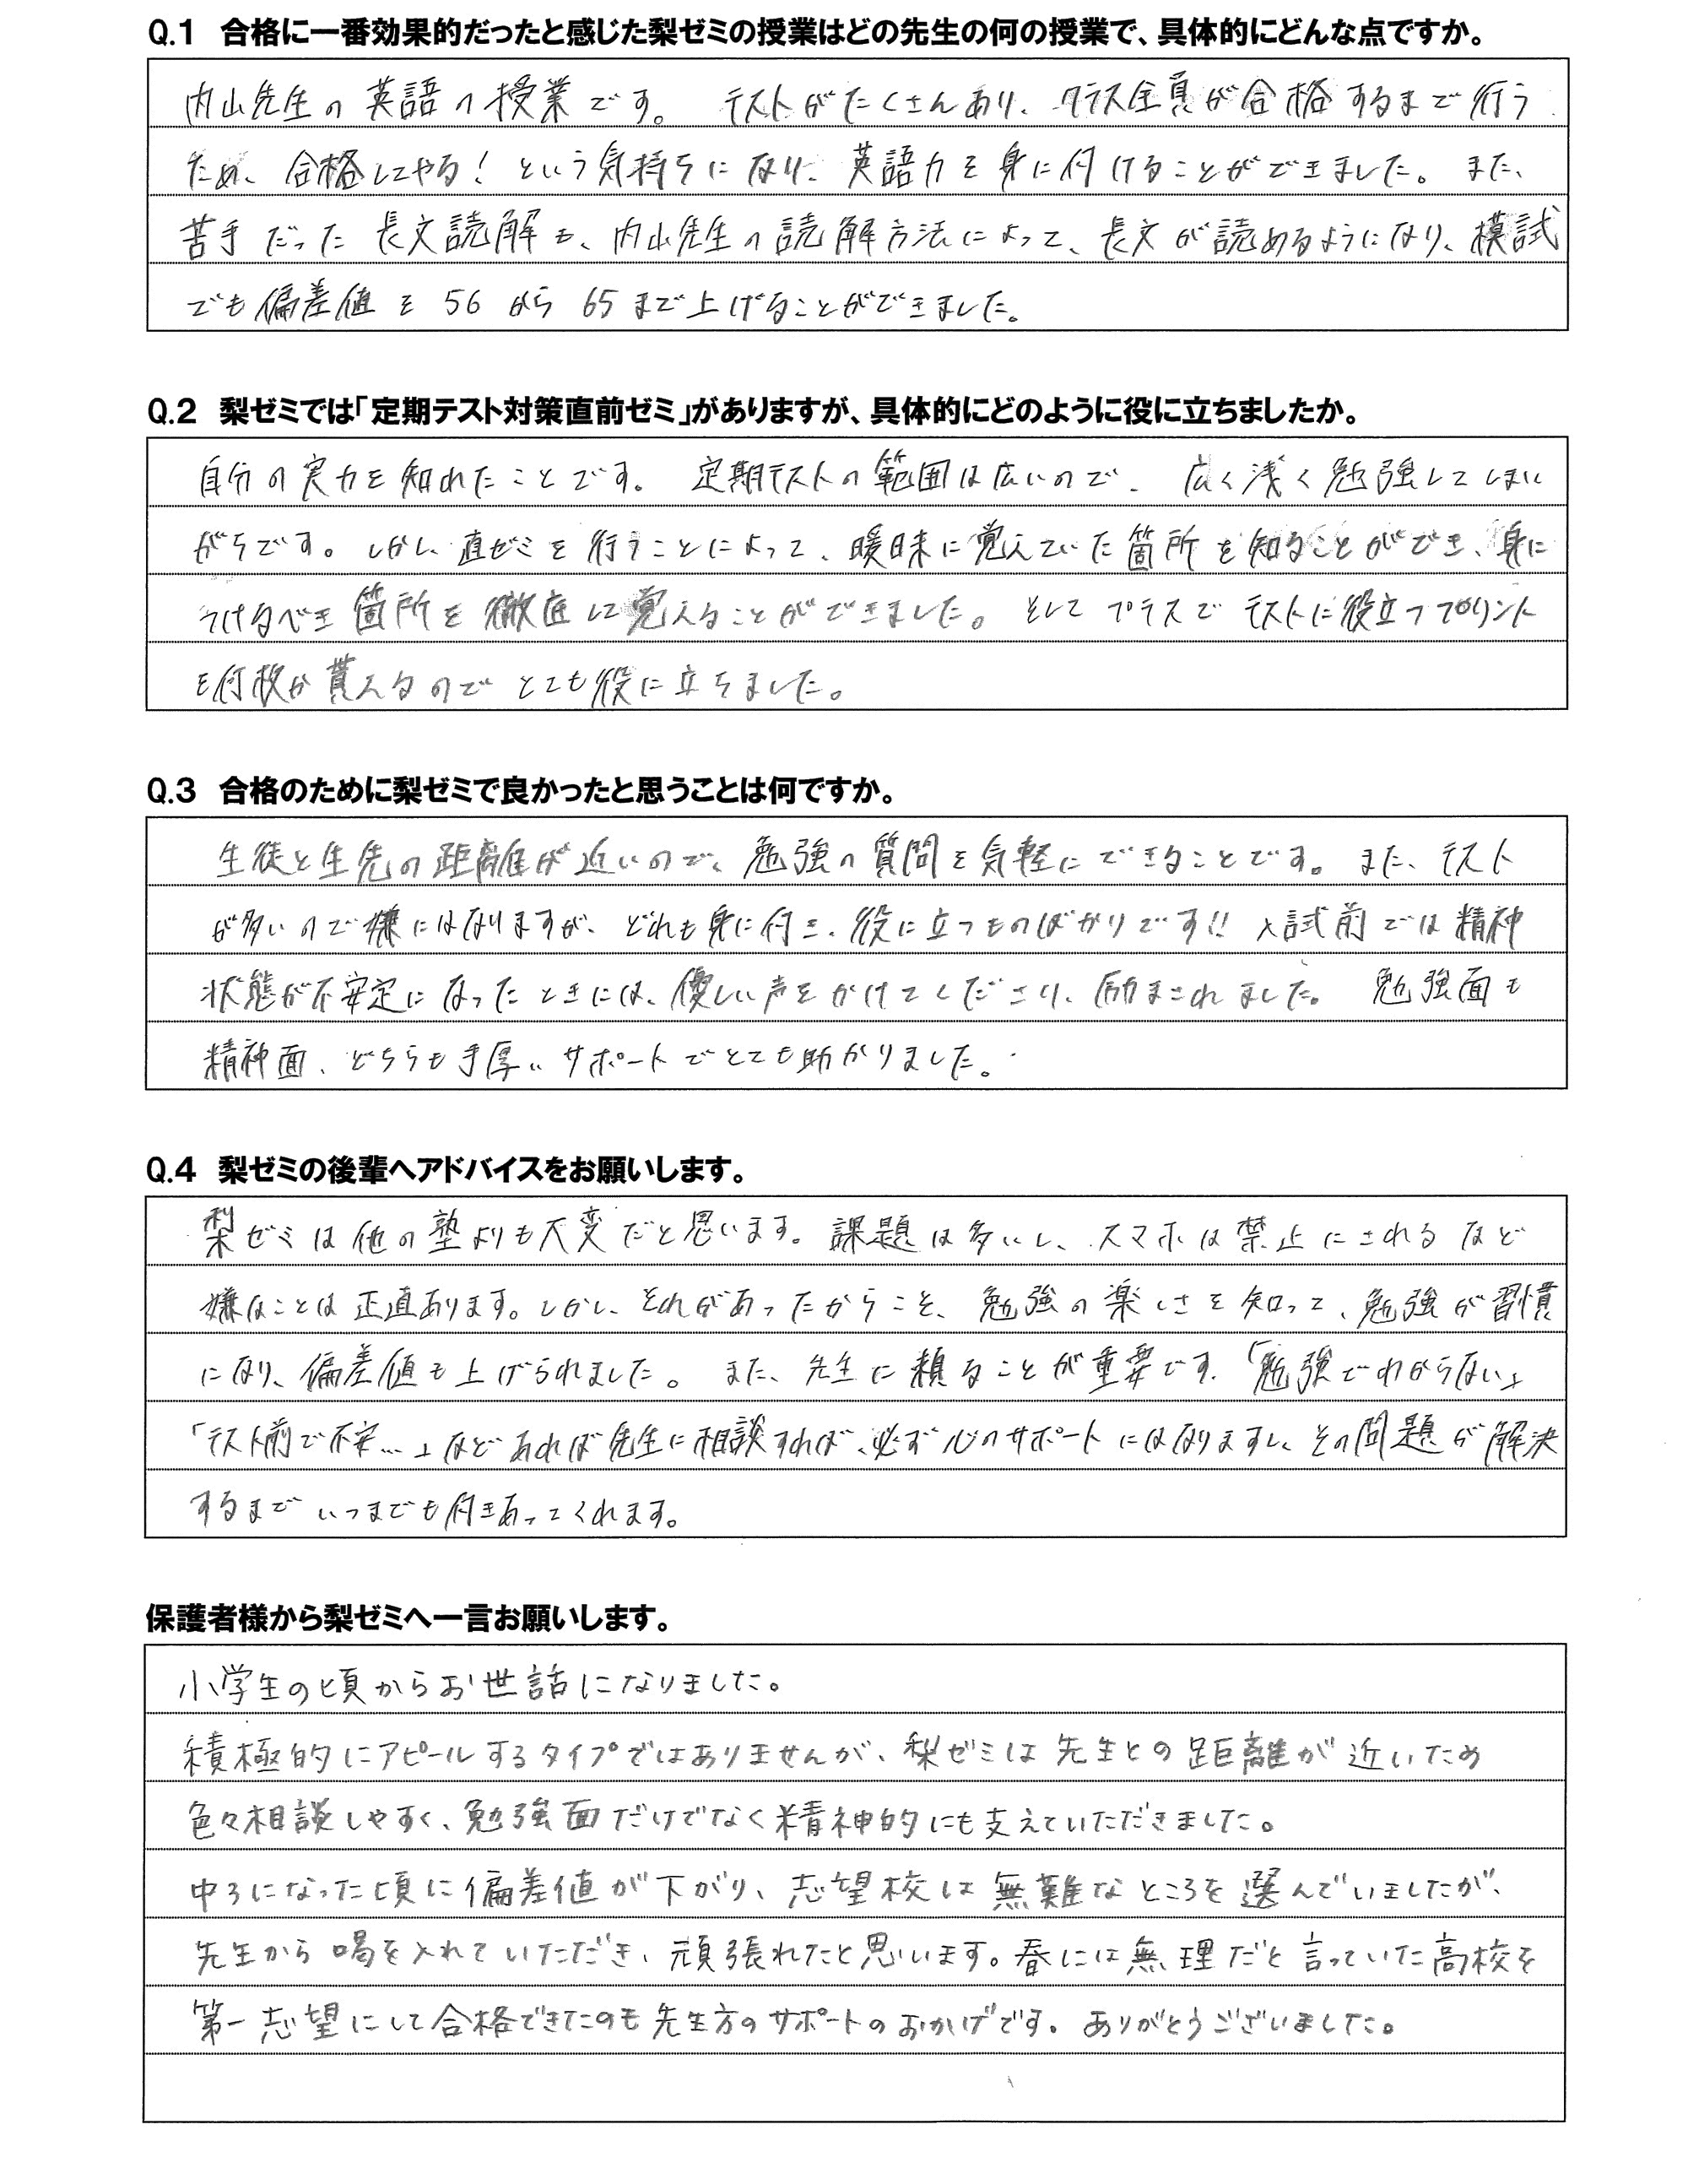 Q.1 合格に一番効果的だったと感じた梨ゼミの授業はどの先生の何の授業で、具体的にどんな点ですか。
内山先生の英語の授業です。 テストがたくさんあり、クラス全員が合格するまで行う
ため、合格してやる! という気持ちになり、英語力を身に付けることができました。また、
苦手だった長文読解も、内山先生の読解方法によって、長文が読めるようになり、模試
でも偏差値を56から65まで上げることができました。
Q.2 梨ゼミでは「定期テスト対策直前ゼミ」がありますが、具体的にどのように役に立ちましたか。
自分の実力を知れたことです。 定期テストの範囲は広いので、広く浅く勉強してしまい
がちです。しかし、直ゼミを行うことによって、曖昧に覚えていた箇所を知ることができ、身に
つけるべき箇所を徹底して覚えることができました。そしてプラスでテストに役立つプリント
を何枚か貰えるのでとても役に立ちました。
Q.3 合格のために梨ゼミで良かったと思うことは何ですか。
生徒と生先の距離が近いので、勉強の質問を気軽にできることです。また、テスト
が多いので嫌にはなりますが、どれも身に付き、役に立つものばかりです!! 入試前では精神
状態が不安定になったときには、優しい声をかけてくださり、励まされました。 勉強面も
精神面、どちらも手厚いサポートでとても助かりました。
Q.4 梨ゼミの後輩へアドバイスをお願いします。
梨ゼミは他の塾よりも大変だと思います。課題は多いし、スマホは禁止にされるなど
嫌なことは正直あります。しかし、それがあったからこそ、勉強の楽しさを知って、勉強が習慣
になり、偏差値も上げられました。 また、先生に頼ることが重要です。「勉強でわからない」
「テスト前で不安…」などあれば先生に相談すれば、必ず心のサポートにはなりますし、その問題が解決
するまでいつまでも付きあってくれます。
保護者様から梨ゼミへ一言お願いします。
小学生の頃からお世話になりました。
積極的にアピールするタイプではありませんが、梨ゼミは先生との距離が近いため
色々相談しやすく、勉強面だけでなく精神的にも支えていただきました。
中3になった頃に偏差値が下がり、志望校は無難なところを選んでいましたが、
先生から喝を入れていただき、頑張れたと思います。春には無理だと言っていた高校を
第一志望にして合格できたのも先生方のサポートのおかげです。ありがとうございました。